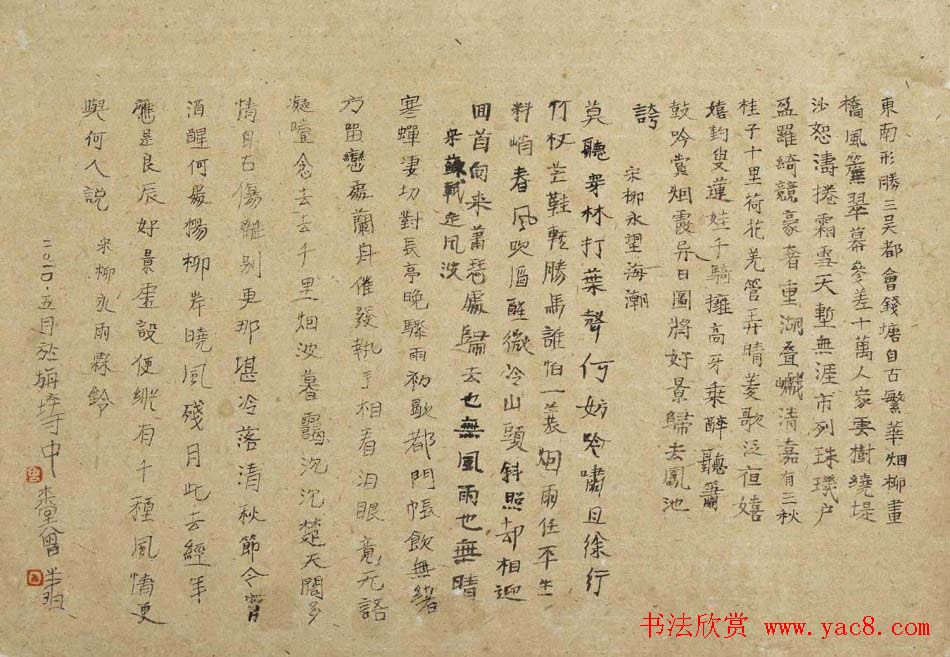 東南形勝三吴都會錢塘自古繁華烟柳畫
橋風簾翠幕參差十萬人家雲樹繞堤
沙怒濤捲霜雪天塹無涯市列珠璣户
盈羅綺競豪奢重湖叠巘清嘉有三秋
桂子十里荷花羌管弄晴菱歌泛夜嬉
嬉釣叟蓮娃千騎擁高牙乘醉聽簫
鼓吟賞烟霞异日圖將好景歸去鳳池
誇
宋柳永望海潮
莫聽穿林打葉聲何妨吟嘯且徐行
竹杖芒鞋輕勝馬誰怕一蓑烟雨任平生
料峭春風吹酒醒微冷山頭斜照却相迎
回首向来蕭瑟處歸去也無風雨也無晴
宋蘇軾定風波
寒蟬凄切對長亭晚驟雨初歇都門帳飲無緒
方留戀處蘭舟催發執手相看泪眼竟无語
凝噎念去去千里烟波暮靄沉沉楚天闊多
情自古傷離别更那堪冷落清秋節今宵
酒醒何處楊柳岸曉風殘月此去經年
應是良辰好景虚設便縱有千種風情更
與何人説
宋柳永雨霖鈴
二〇一〇.五月於梅寺中
书法欣赏 www.yac8.com